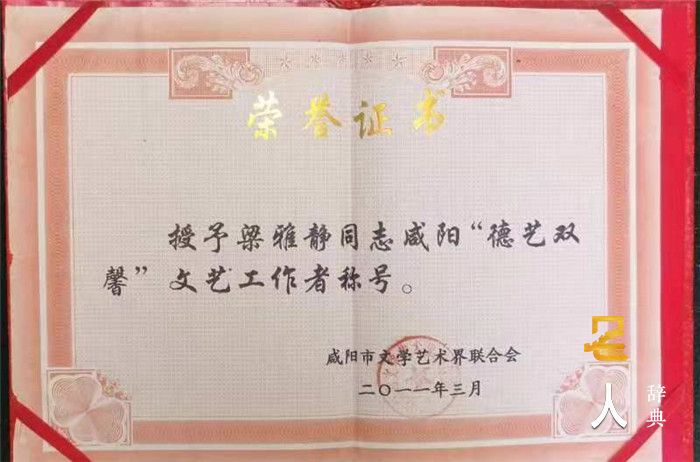 荣誉证书
授予梁雅静同志咸阳“德艺双
馨”文艺工作者称号。
咸阳市文学艺术界联合会
二〇一一年三月
名
人
辞
典